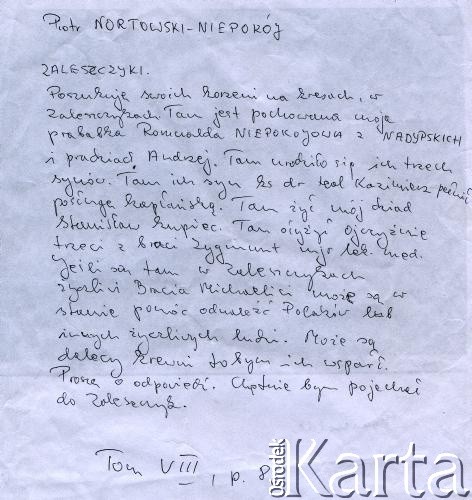 Piotr NORTOWSKI-NIEPOKÓJ
ZALESZCZYKI.
Poszukuję swoich korzeni na kresach, w
Zaleszczykach Tam jest pochowana moja
prababka Romualda NIEPOKOJOWA z NADYPSKICH
i pradziad Andrzej. Tam urodziło się ich trzech
synów. Tam ich syn ks dr teol Kazimierz pełnił
posługę kapłańską. Tam żyć mój dziad
Stanisław kupiec. Tam ojczyźnie
trzeci z braci Zygmunt mjr lek. med.
Jeśli są tam w Zaleszczykach
życzliwi Bracia Michalici może są w
stanie pomóc odnaleźć Polaków lub
innych życzliwych ludzi. Może są
dalecy krewni to bym ich wsparł.
Proszę o odpowiedź. Chętnie bym pojechał
do Zaleszczyk.
Tom VIII, p. 8
Ośrodek
Karta